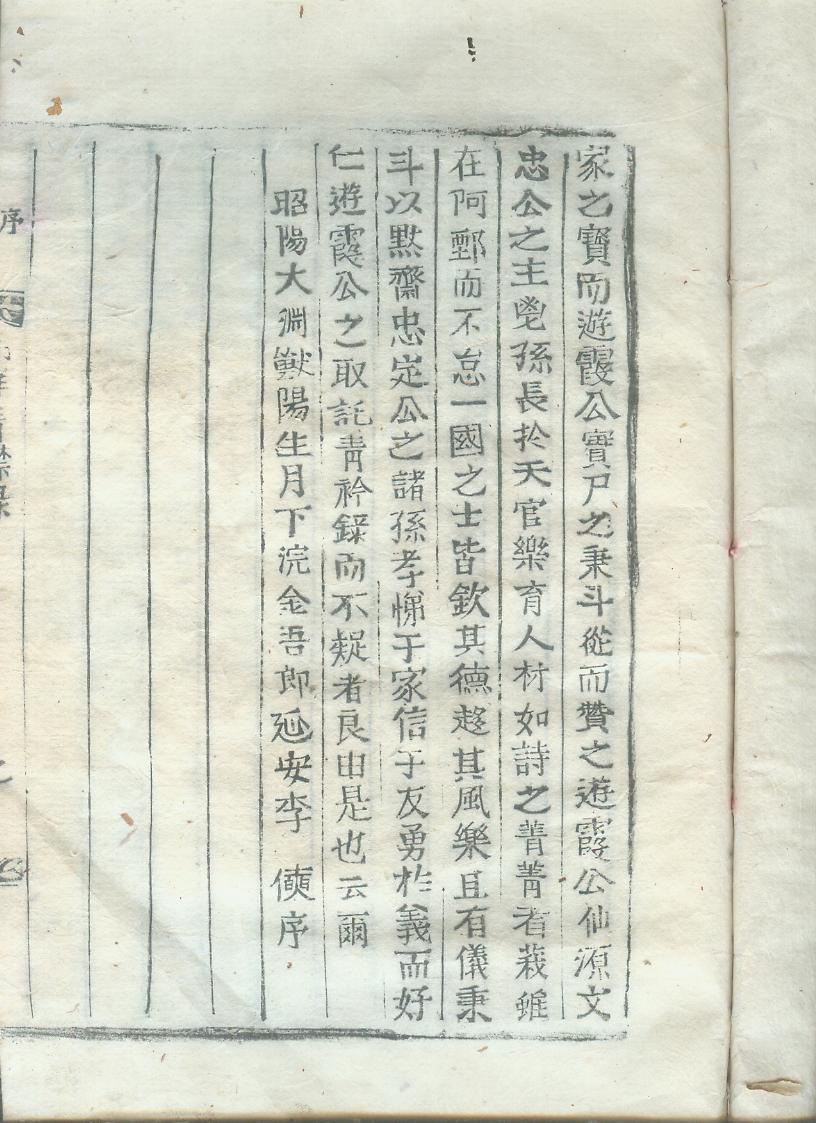 家之寶而遊霞公實尸之秉斗從而贊之遊霞公仙源文
忠公之主鬯孫長於天官樂育人材如詩之菁菁者莪雖
在阿鄄而不怠一國之士皆欽其德趍其風樂且有儀秉
斗以黙齋忠定公之諸孫孝悌于家信于友勇於義而好
仁遊霞公之取託靑衿錄而不疑者良由是也云爾
昭陽大淵獻陽生月下浣金吾郎延安李 序
序